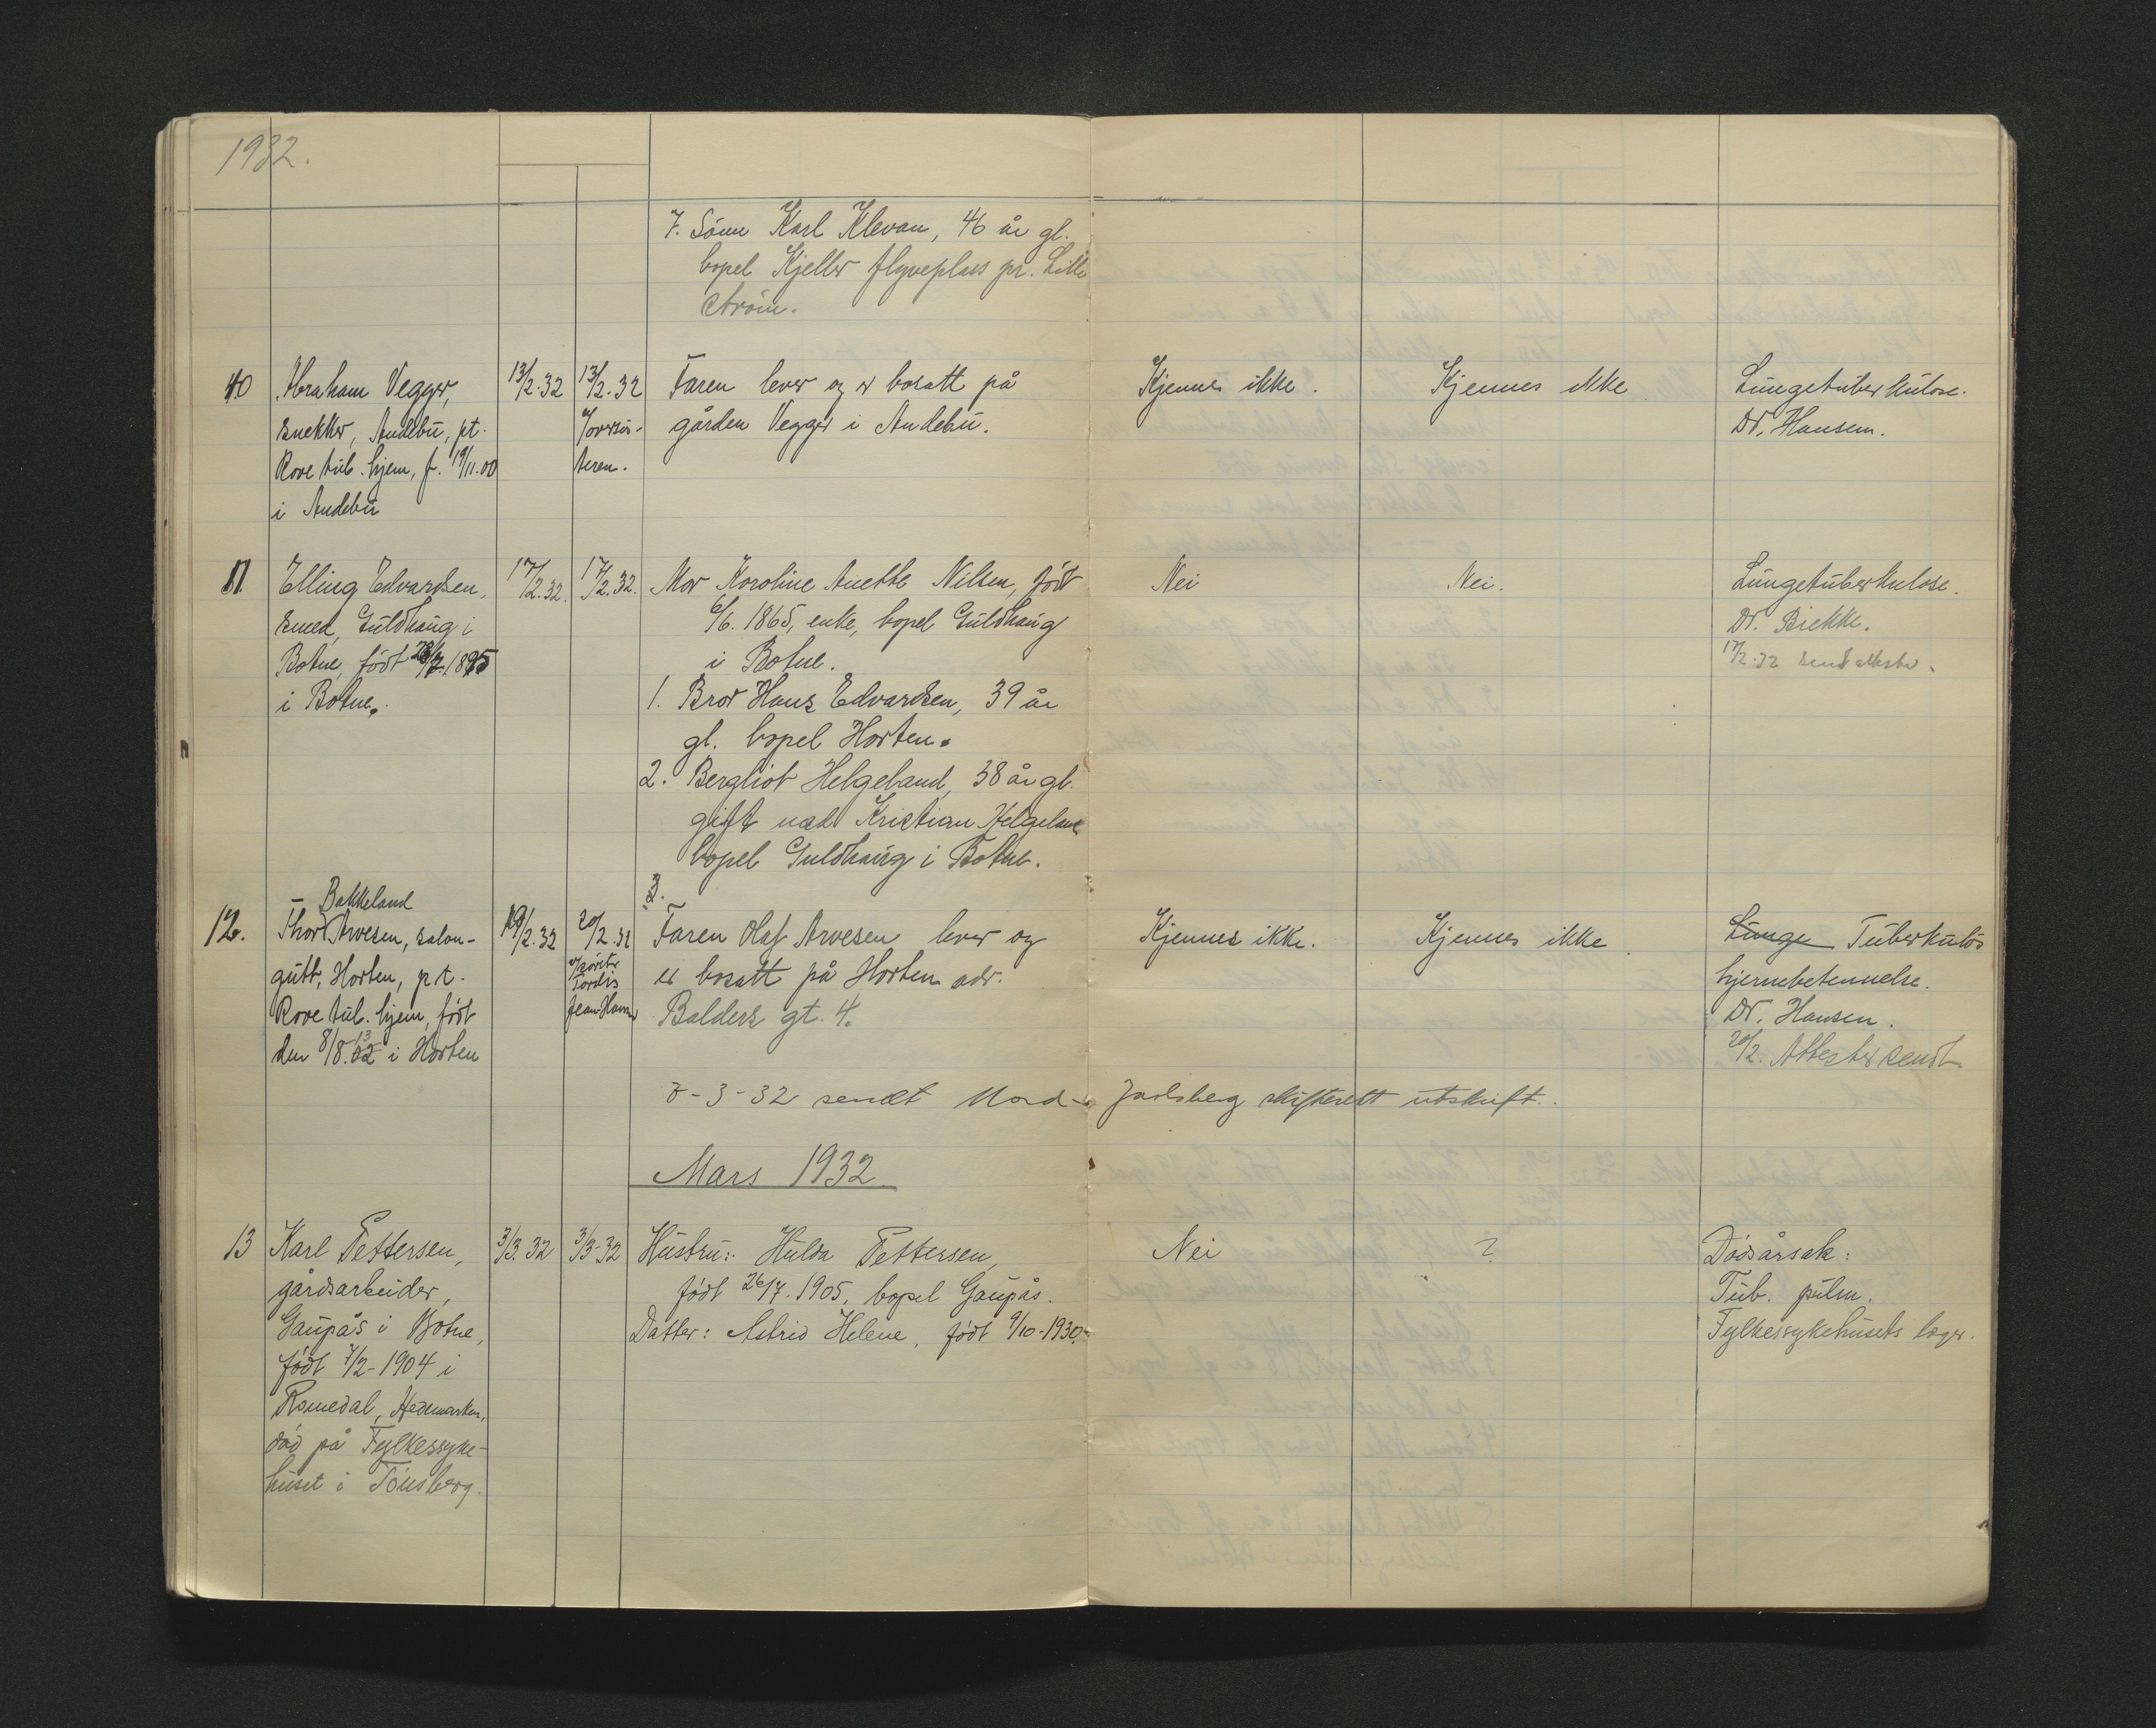 1932.
7. Sönn Karl Klevan, 46 år gl.
bopel Kjeller flyveplass pr. Lille
ström.
10 Abraham Vegger,
snekker, Andebu, pt.
Rove tub. hjem, f. 19/11.00
i Andebu
13/2.32
13/2.32
v/oversös-
teren.
Faren lever og er bosatt på
gården Vegger i Andebu.
Kjennes ikke.
Kjennes ikke
Lungetuberkulose.
Dr. Hansen.
11. Elling Edvardsen,
smed, Guldhaug i
Botne, født 1895
i Botne.
17/2.32.
17/2.32.
Mor Karoline Anette Nilsen, født
6/6. 1865, enke, bopel Guldhaug
i Botne.
1. Bror Hans Edvardsen, 39 år
gl. bopel Horten.
2. Bergliot Helgeland, 38 år gl.
gift med Kristian Helgeland
bopel Guldhaug i Botne.
3.
Nei
Nei.
Lungetuberkulose.
Dr. Bjekke.
17/2.32 sendt attester.
Bakkeland
12. Thor Arvesen, salon-
gutt, Horten, p.t.
Rove tub. hjem, født
den 8/8.13 i Horten
19/2.32
20/2.32
v/söster
Tordis
Faren Olaf Arvesen lever og
er bosatt på Horten adr.
Balders gt. 4.
Kjennes ikke.
Kjennes ikke
Lunge Tuberkulös
hjernebetennelse.
Dr. Hansen.
20/2. Attester sendt
8-3-32 sendt Nord-Jarlsberg skifterett utskrift.
Mars 1932
13 Karl Pettersen,
gårdsarbeider,
Gaupås i Botne,
født 7/2-1904 i
Romedal, Hedemarken,
död på Fylkessyke-
huset i Tönsberg.
3/3.32
3/3-32
Hustru: Hulda Pettersen,
født 26/7.1905, bopel Gaupås.
Datter: Astrid Helene, født 9/10-1930.
Nei
?
Dödsårsak:
Tub. pulm.
Fylkessykehusets læge.